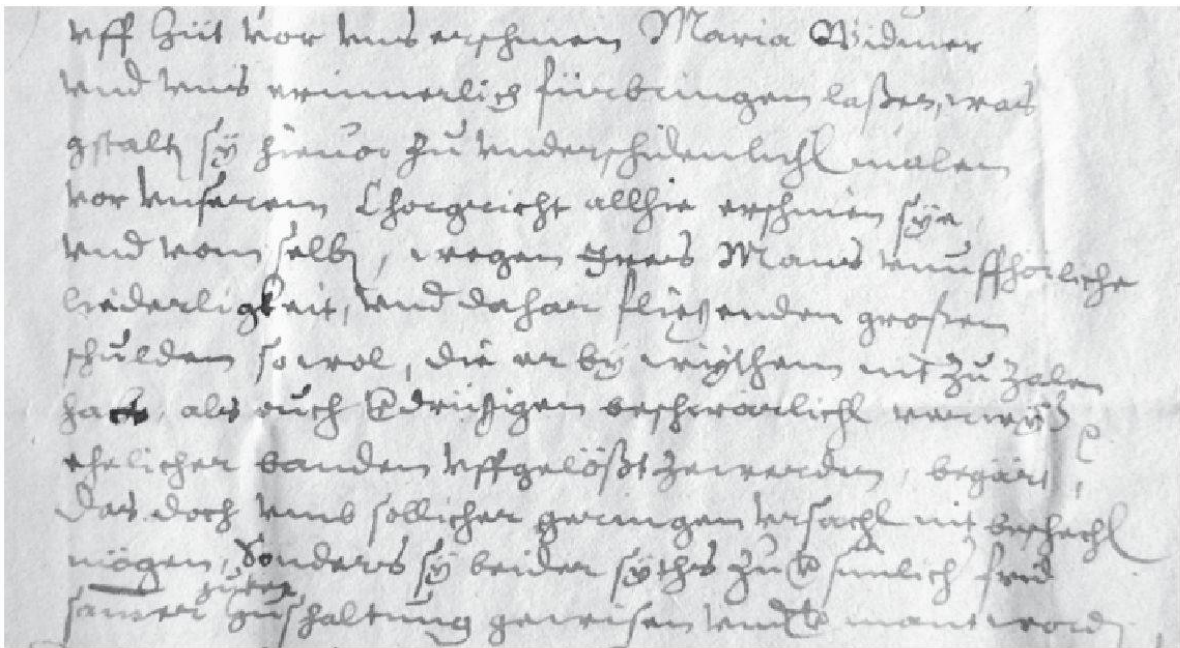 uff hüt vor uns erschinen Maria Widmer
und uns erinnerlich fürbringen laßen, was
gstalt sÿ hievor zu underschidenlichen malen
vor unserem Chorgricht allhie erschinen sÿe
und vom selben, wegen Ires Mans unuffhörliche
liederligkeit, und dahar fließenden großen
schulden sowol, die er by wythem nit zu zalen
hat, als ouch drüßigen beschwärlichen
ehelicher banden uffgelößt zewerden, begärt,
das doch umb sollicher geringen ursach nit beschechen
mögen, Sonders sÿ beider sÿths zu fridsamer
guten
hushaltung gewisen und mant worden,